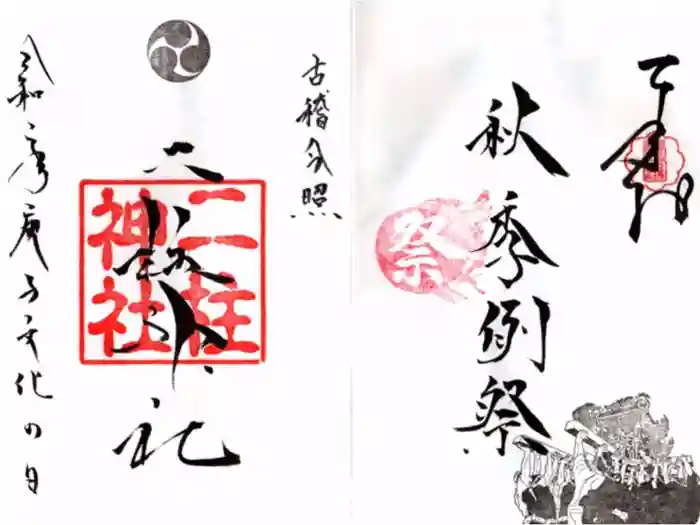 奉拝
秋季例祭
祭
古稽今照
二柱神社
二柱神社
令和庚子文化の日